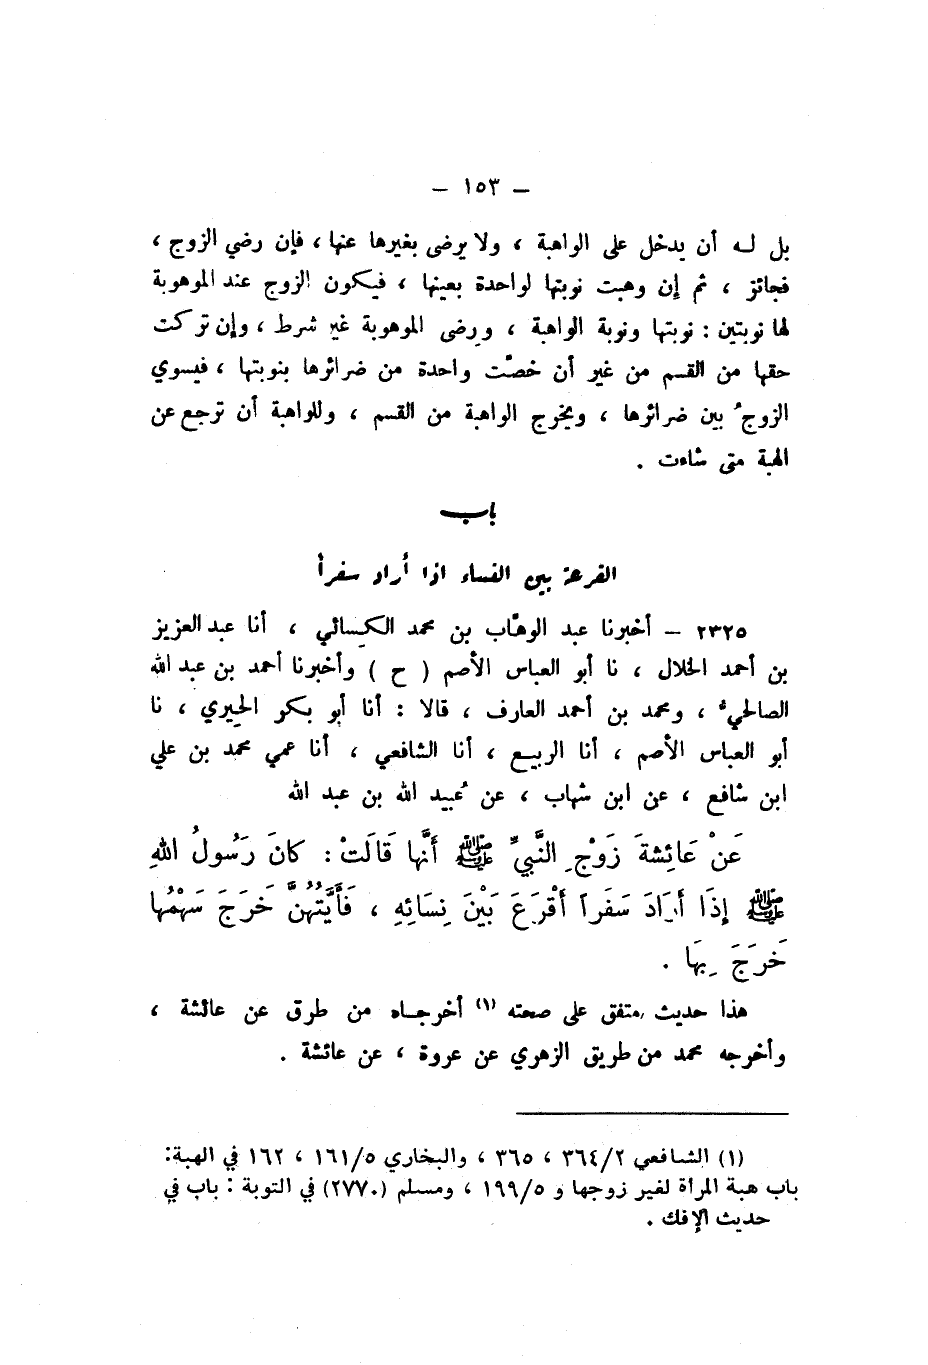 – ١٥٣ –
بل لـه أن يدخل على الواهبة ، ولا يرضى بغيرها عنها ، فإن رضي الزوج ،
فجائز ، ثم إن وهبت نوبتها لواحدة بعينها ، فيكون الزوج عند الموهوبة
لها نوبتين : نوبتها ونوبة الواهبة ، ورضى الموهوبة غير شرط ، وإن تركت
حقها من القسم من غير أن خصت واحدة من ضرائرها بنوبتها ، فيسوي
الزوجُ بين ضرائرها ، ويخرج الواهبة من القسم ، وللواهبة أن ترجع عن
الهبة متى شاءت .
باب
القرعة بين النساء اذا أراد سفراً
٢٣٢٥ – أخبرنا عبد الوهاب بن محمد الكسائي ، أنا عبد العزيز
بن أحمد الخلال ، نا أبو العباس الأصم ( ح ) وأخبرنا أحمد بن عبد الله
الصالحيُّ ، ومحمد بن أحمد العارف ، قالا : أنا أبو بكر الحيري ، نا
أبو العباس الأصم ، أنا الربيع ، أنا الشافعي ، أنا عمي محمد بن علي
ابن شافع ، عن ابن شهاب ، عن عُبيد الله بن عبد الله
عَنْ عَائِشَةَ زَوْجِ النَّبِيِّ ﷺ أَنَّها قَالَتْ : كانَ رَسُولُ اللهِ
ﷺ إِذَا أَرَادَ سَفَراً أَقْرَعَ بَيْنَ نِسَائِهِ ، فَأَيَّتُهُنَّ خَرَجَ سَهْمُها
خَرَجَ بِهَا .
هذا حديث متفق على صحته (١) أخرجـاه من طرق عن عائشة ،
وأخرجه محمد من طريق الزهري عن عروة ، عن عائشة .
(١) الشافعي ٣٦٤/٢ ، ٣٦٥ ، والبخاري ١٦١/٥ ، ١٦٢ في الهبة:
باب هبة المرأة لغير زوجها و ١٩٩/٥ ، ومسلم (٢٧٧٠) في التوبة : باب في
حديث الإفك .